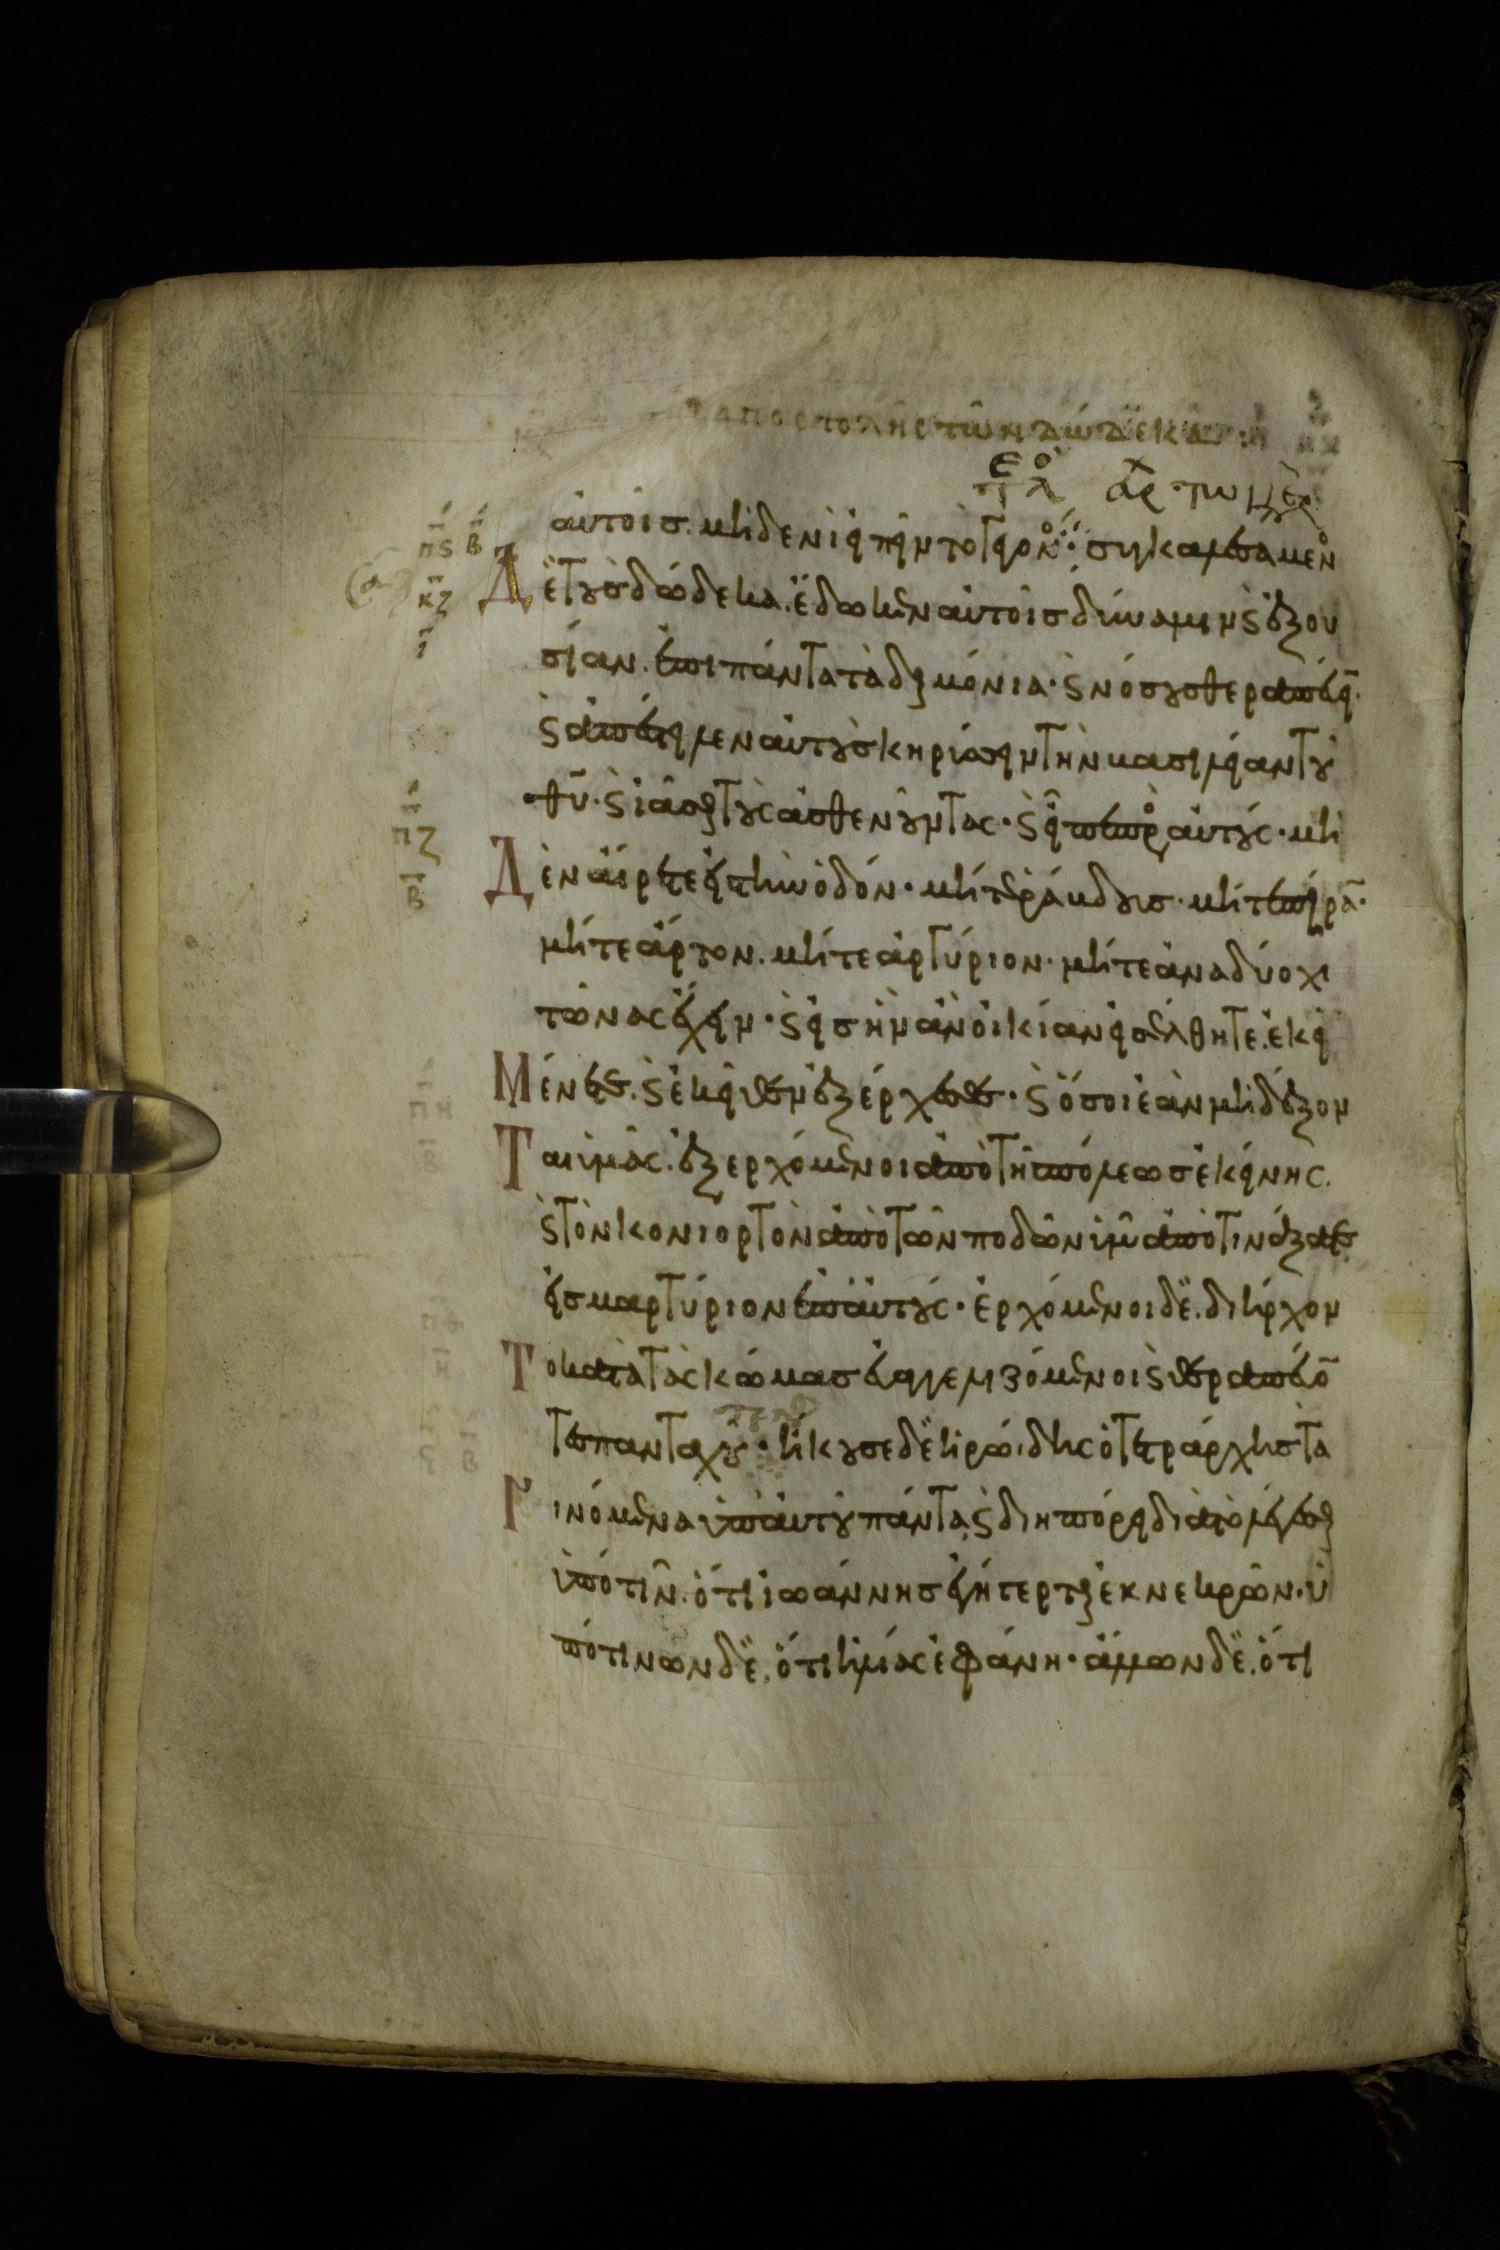 αποστολῆς τῶν δώδεκα
αὐτοῖσ. μηδενὶ εἰπεῖν τὸ γεγον ̊· συγκαλεσάμενο
Δὲ τοὺσ δώδεκα. ἔδωκεν αὐτοῖσ δύναμιν ϗ ἐξου
σίαν. ἐπι πάντα τὰ δαιμόνια· ϗ νόσουσ θεραπεύει̅.
ϗ ἀπέστειλεν αὐτοὺσ κηρύσσειν τὴν βασιλείαν τοῦ
θυ̅· ϗ ἰᾶσθαι τοὺς ἀσθενοῦντας· ϗ εἶπε πρὸ αὐτούς· μη
Δὲν αἴρετε εἰς τὴν ὁδόν· μήτε ῥάβδουσ· μήτε πήρα̅·
μήτε ἄρτον. μήτε ἀργύριον· μήτε ἀνα δύο χι
τῶνας ἔχειν· ϗ εἰσ ἣν ἂν οἰκίαν εἰσέλθητε. ἐκεῖ
Μένετε. ϗ ἐκεῖθεν ἐξέρχεσθε· ϗ ὅσοι ἐὰν μὴ δέξον
Ται ὑμᾶς. ἐξερχόμενοι ἀπὸ τῆς πόλεωσ ἐκείνης.
ϗ τὸν κονιορτὸν ἀπὸ τῶν ποδῶν ὑμῶ ἀποτινάξατε
εἰσ μαρτύριον ἐπ' αὐτούς· ἐρχόμενοι δὲ. διήρχον
Το κατὰ τὰς κώμασ εὐαγγελιζόμενοι ϗ θεραπεύο̅
Τες πανταχοῦ· ἤκουσε δὲ ἡρώδης ὁ τετράρχησ τὰ
Γινόμενα ὑπ' αὐτοῦ πάντα, ϗ διηπόρει διὰ τὸ λέγεσθαι
ὑπό τιν̂. ὅτι ἰωάννησ ἐγήγερται ἐκ νεκρῶν· ὑ
πό τινων δὲ. ὅτι ἡλίας ἐφάνη· ἄλλων δὲ. ὅτι